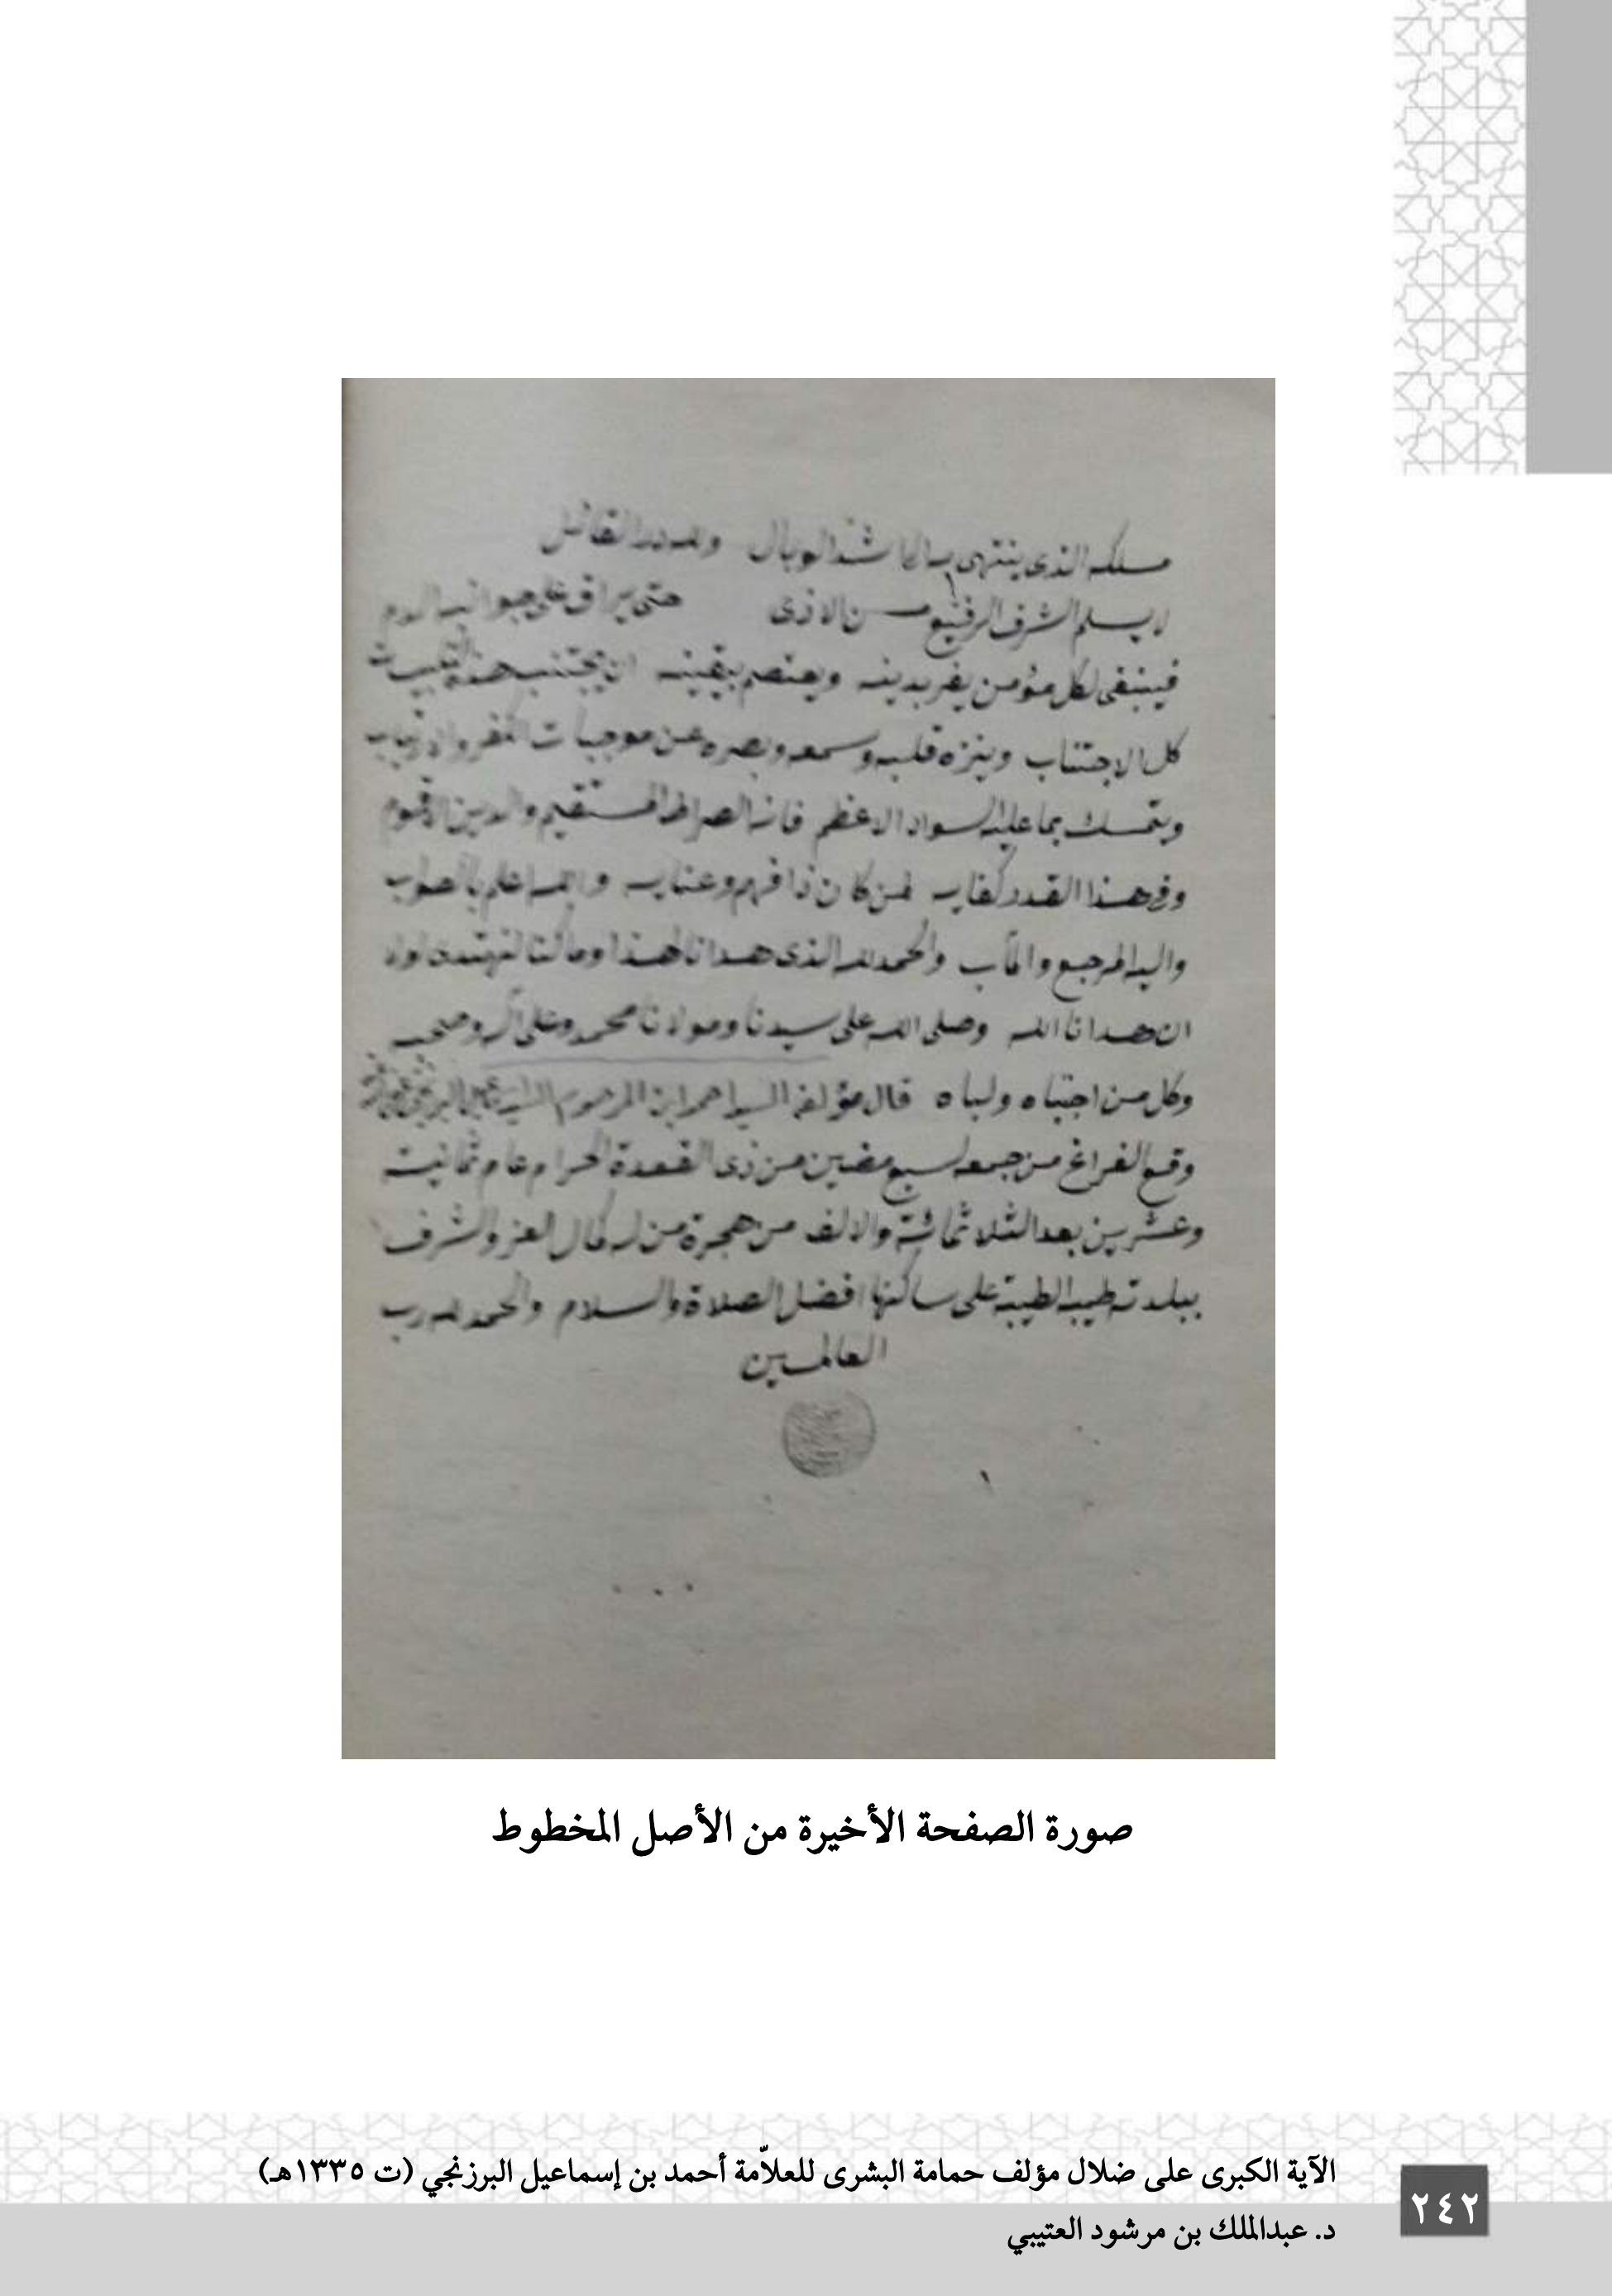 مسلكه الذى ينتهى به الى اشد الوبال ولله در القائل
لا يسلم الشرف الرفيع من الاذى حتى يراق على جوانبه الدم
فينبغى لكل مؤمن يفر بدينه ويعتصم بيقينه ان يجتنب هذه
كل الاجتناب وينزه قلبه وسمعه وبصره عن موجبات الكفر والارتياب
ويتمسك بما عليه السواد الاعظم فانه الصراط المستقيم والدين الاقوم
وفى هذا القدر كفايه لمن كان ذا فهم وعنايه والله اعلم بالصواب
واليه المرجع والمآب والحمد لله الذى هدانا لهذا وما كنا لنهتدى لولا
ان هدانا الله وصلى الله على سيدنا ومولانا محمد وعلى آله وصحبه
وكل من اجتباه ولباه قال مؤلفه السيد احمد ابن المرحوم السيد
وقع الفراغ من جمعه لسبع مضين من ذى القعدة الحرام عام ثمانيت
وعشرين بعد الثلاثمائة والالف من هجرة من له كمال العز والشرف
ببلدته طيبه الطيبة على ساكنها افضل الصلاة والسلام والحمد لله رب
العالمين
صورة الصفحة الأخيرة من الأصل المخطوط
الآية الكبرى على ضلال مؤلف حمامة البشرى للعلاّمة أحمد بن إسماعيل البرزنجي (ت ١٣٣٥هـ)
٢٤٢
د. عبدالملك بن مرشود العتيبي